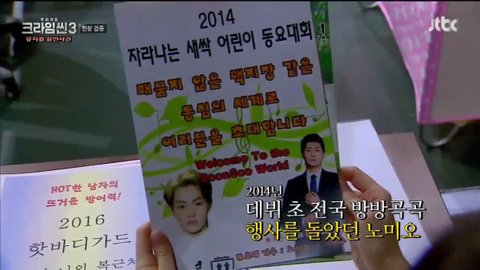 추리게임
크라임씬3
뮤지컬 살인사건
현장 검증
jtbc
2014
자라나는 새싹 어린이 동요대회
때묻지 않은 돼지장 같은
동심의 세계로
여러분을 초대합니다
Welcome To the
MoonSoo World
HOT한 남자의
뜨거운 방어력!
2016
핫바디가드
2014년
데뷔 초 전국 방방곡곡
행사를 돌았던 노미오